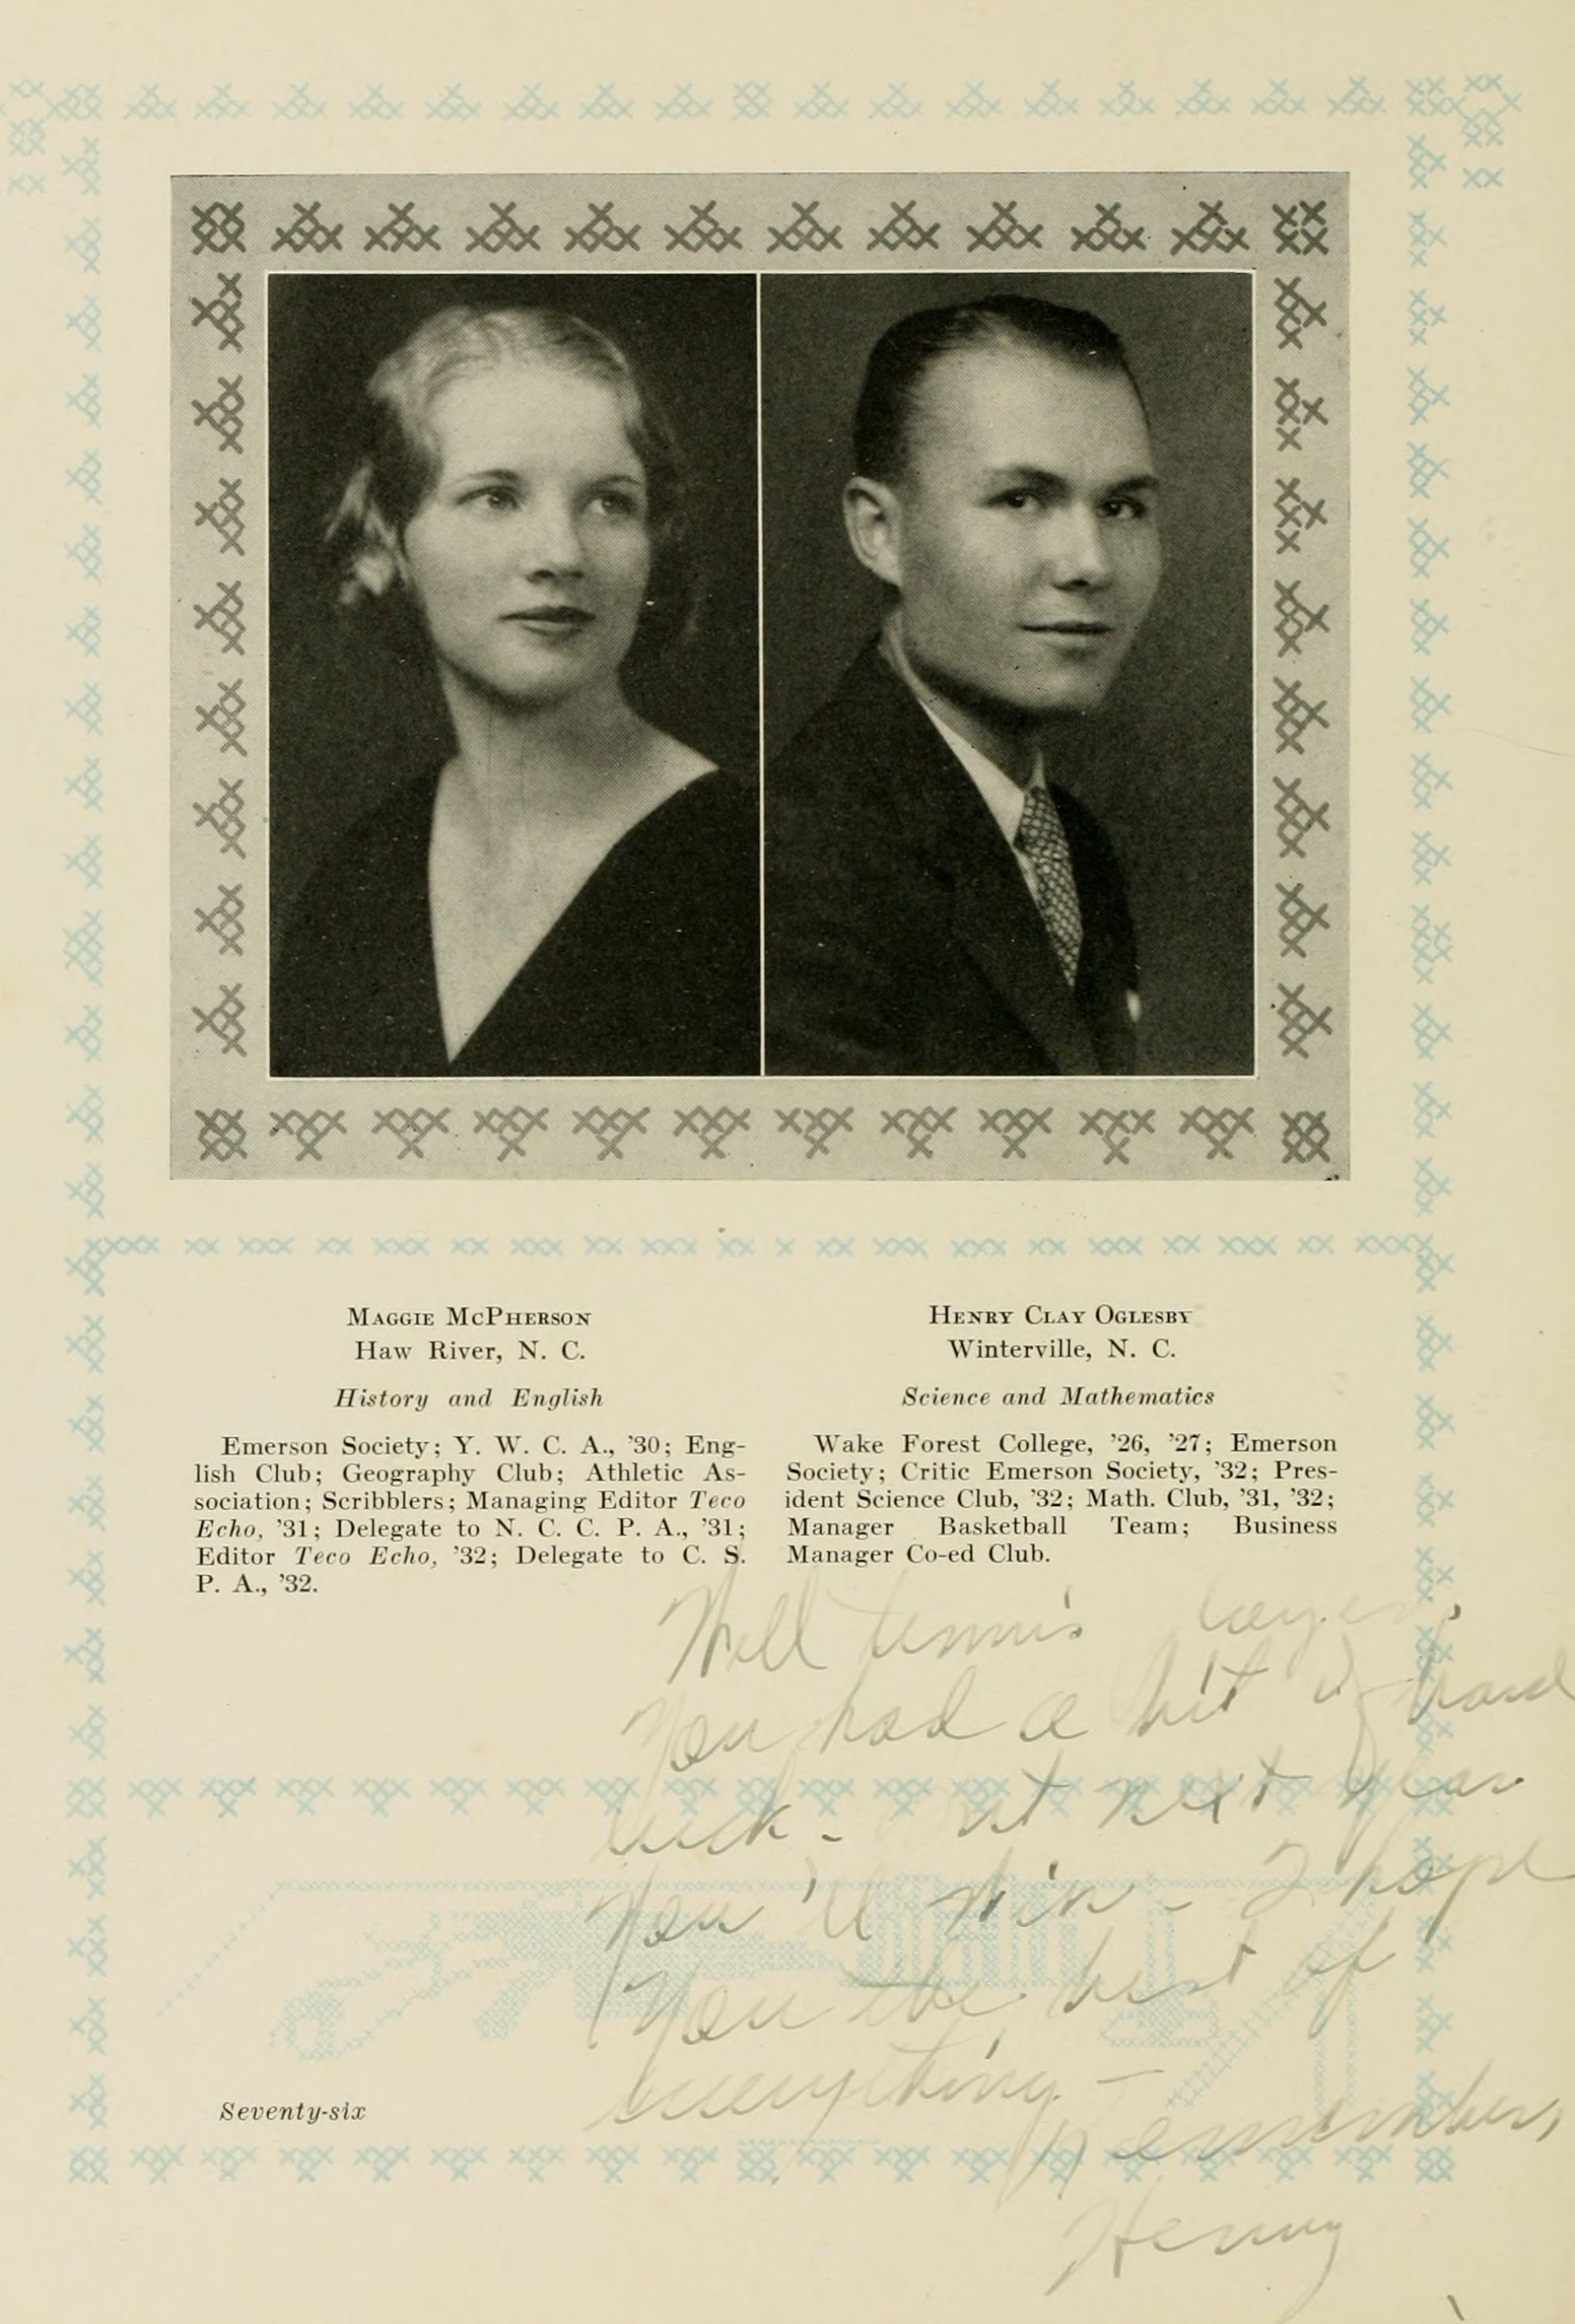 MAGGIE MCPHERSON
Haw River, N. C.
History and English
Emerson Society; Y. W. C. A., '30; Eng-
lish Club; Geography Club; Athletic As-
sociation; Scribblers; Managing Editor Teco
Echo, '31; Delegate to N. C. C. P. A., '31;
Editor Teco Echo, '32; Delegate to C. S.
P. A., '32.
HENRY CLAY OGLESBY
Winterville, N. C.
Science and Mathematics
Wake Forest College, '26, '27; Emerson
Society; Critic Emerson Society, '32; Pres-
ident Science Club, '32; Math. Club, '31, '32;
Manager Basketball Team; Business
Manager Co-ed Club.
Well tennis
You had a bit of hard
luck - but next year
You'll win - I hope
You the best of
everything -
Remember,
Henry
Seventy-six